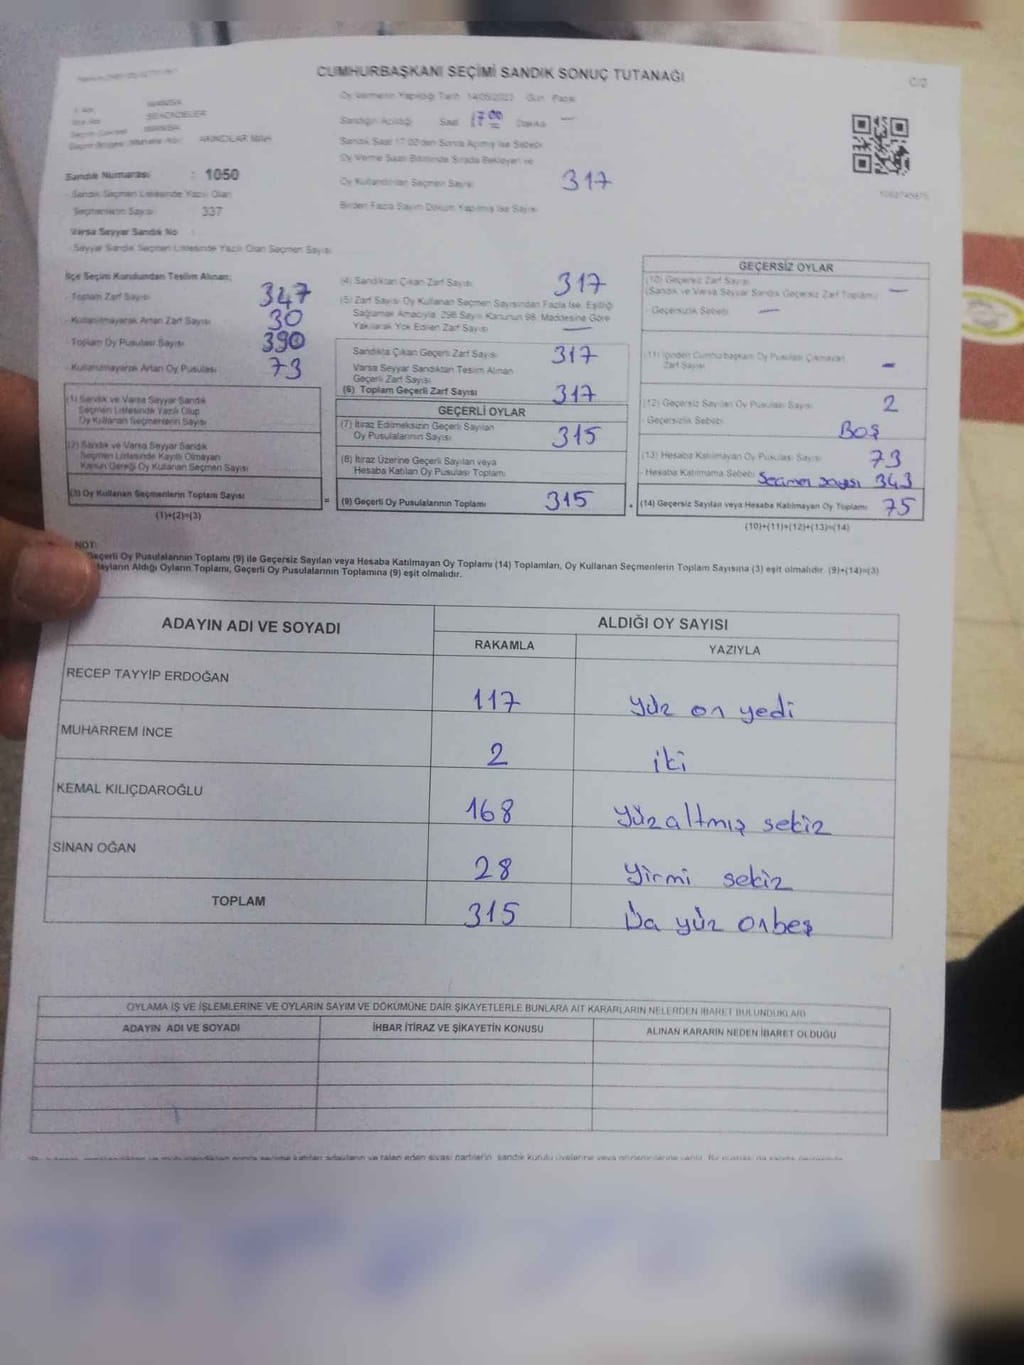 CUMHURBAŞKANI SEÇİMİ SANDIK SONUÇ TUTANAĞI
C/2
Oy Vermenin Yapıldığı Tarih 14/05/2023 Gün Pazar
MANİSA
ŞEHZADELER
MANİSA
AKINCILAR MAH
Sandığın Açıldığı Saat 17:00 Dakika —
Sandık Saat 17:00'den Sonra Açılmış ise Sebebi
Oy Verme Saati Bitiminde Sırada Bekleyen ve
Oy Kullandırılan Seçmen Sayısı 317
Birden Fazla Sayım Döküm Yapılmış ise Sayısı
Sandık Numarası : 1050
- Sandık Seçmen Listesinde Yazılı Olan
Seçmenlerin Sayısı 337
Varsa Seyyar Sandık No
- Seyyar Sandık Seçmen Listesinde Yazılı Olan Seçmen Sayısı
İlçe Seçim Kurulundan Teslim Alınan;
- Toplam Zarf Sayısı 347
- Kullanılmayarak Artan Zarf Sayısı 30
- Toplam Oy Pusulası Sayısı 390
- Kullanılmayarak Artan Oy Pusulası 73
(1) Sandık ve Varsa Seyyar Sandık
Seçmen Listesinde Yazılı Olup
Oy Kullanan Seçmenlerin Sayısı
(2) Sandık ve Varsa Seyyar Sandık
Seçmen Listesinde Kayıtlı Olmayan
Kanun Gereği Oy Kullanan Seçmen Sayısı
(3) Oy Kullanan Seçmenlerin Toplam Sayısı
(1)+(2)=(3)
(4) Sandıktan Çıkan Zarf Sayısı 317
(5) Zarf Sayısı Oy Kullanan Seçmen Sayısından Fazla ise, Eşitliği
Sağlamak Amacıyla, 298 Sayılı Kanunun 98. Maddesine Göre
Yakılarak Yok Edilen Zarf Sayısı —
Sandıkta Çıkan Geçerli Zarf Sayısı 317
Varsa Seyyar Sandıktan Teslim Alınan
Geçerli Zarf Sayısı
(6) Toplam Geçerli Zarf Sayısı 317
GEÇERLİ OYLAR
(7) İtiraz Edilmeksizin Geçerli Sayılan
Oy Pusulalarının Sayısı 315
(8) İtiraz Üzerine Geçerli Sayılan veya
Hesaba Katılan Oy Pusulası Toplamı
= (9) Geçerli Oy Pusulalarının Toplamı 315
GEÇERSİZ OYLAR
(10) Geçersiz Zarf Sayısı
(Sandık ve Varsa Seyyar Sandık Geçersiz Zarf Toplamı) —
- Geçersizlik Sebebi —
(11) İçinden Cumhurbaşkanı Oy Pusulası Çıkmayan
Zarf Sayısı -
(12) Geçersiz Sayılan Oy Pusulası Sayısı 2
- Geçersizlik Sebebi BOŞ
(13) Hesaba Katılmayan Oy Pusulası Sayısı 73
- Hesaba Katılmama Sebebi Seçmen sayısı 343
(14) Geçersiz Sayılan veya Hesaba Katılmayan Oy Toplamı 75
(10)+(11)+(12)+(13)=(14)
NOT:
Geçerli Oy Pusulalarının Toplamı (9) ile Geçersiz Sayılan veya Hesaba Katılmayan Oy Toplamı (14) Toplamları, Oy Kullanan Seçmenlerin Toplam Sayısına (3) eşit olmalıdır. (9)+(14)=(3)
Aldığı Oyların Toplamı, Geçerli Oy Pusulalarının Toplamına (9) eşit olmalıdır.
ADAYIN ADI VE SOYADI
ALDIĞI OY SAYISI
RAKAMLA
YAZIYLA
RECEP TAYYİP ERDOĞAN 117 yüz on yedi
MUHARREM İNCE 2 iki
KEMAL KILIÇDAROĞLU 168 yüz altmış sekiz
SİNAN OĞAN 28 yirmi sekiz
TOPLAM 315 Üç yüz onbeş
OYLAMA İŞ VE İŞLEMLERİNE VE OYLARIN SAYIM VE DÖKÜMÜNE DAİR ŞİKAYETLERLE BUNLARA AİT KARARLARIN NELERDEN İBARET BULUNDUKLARI
ADAYIN ADI VE SOYADI
İHBAR İTİRAZ VE ŞİKAYETİN KONUSU
ALINAN KARARIN NEDEN İBARET OLDUĞU